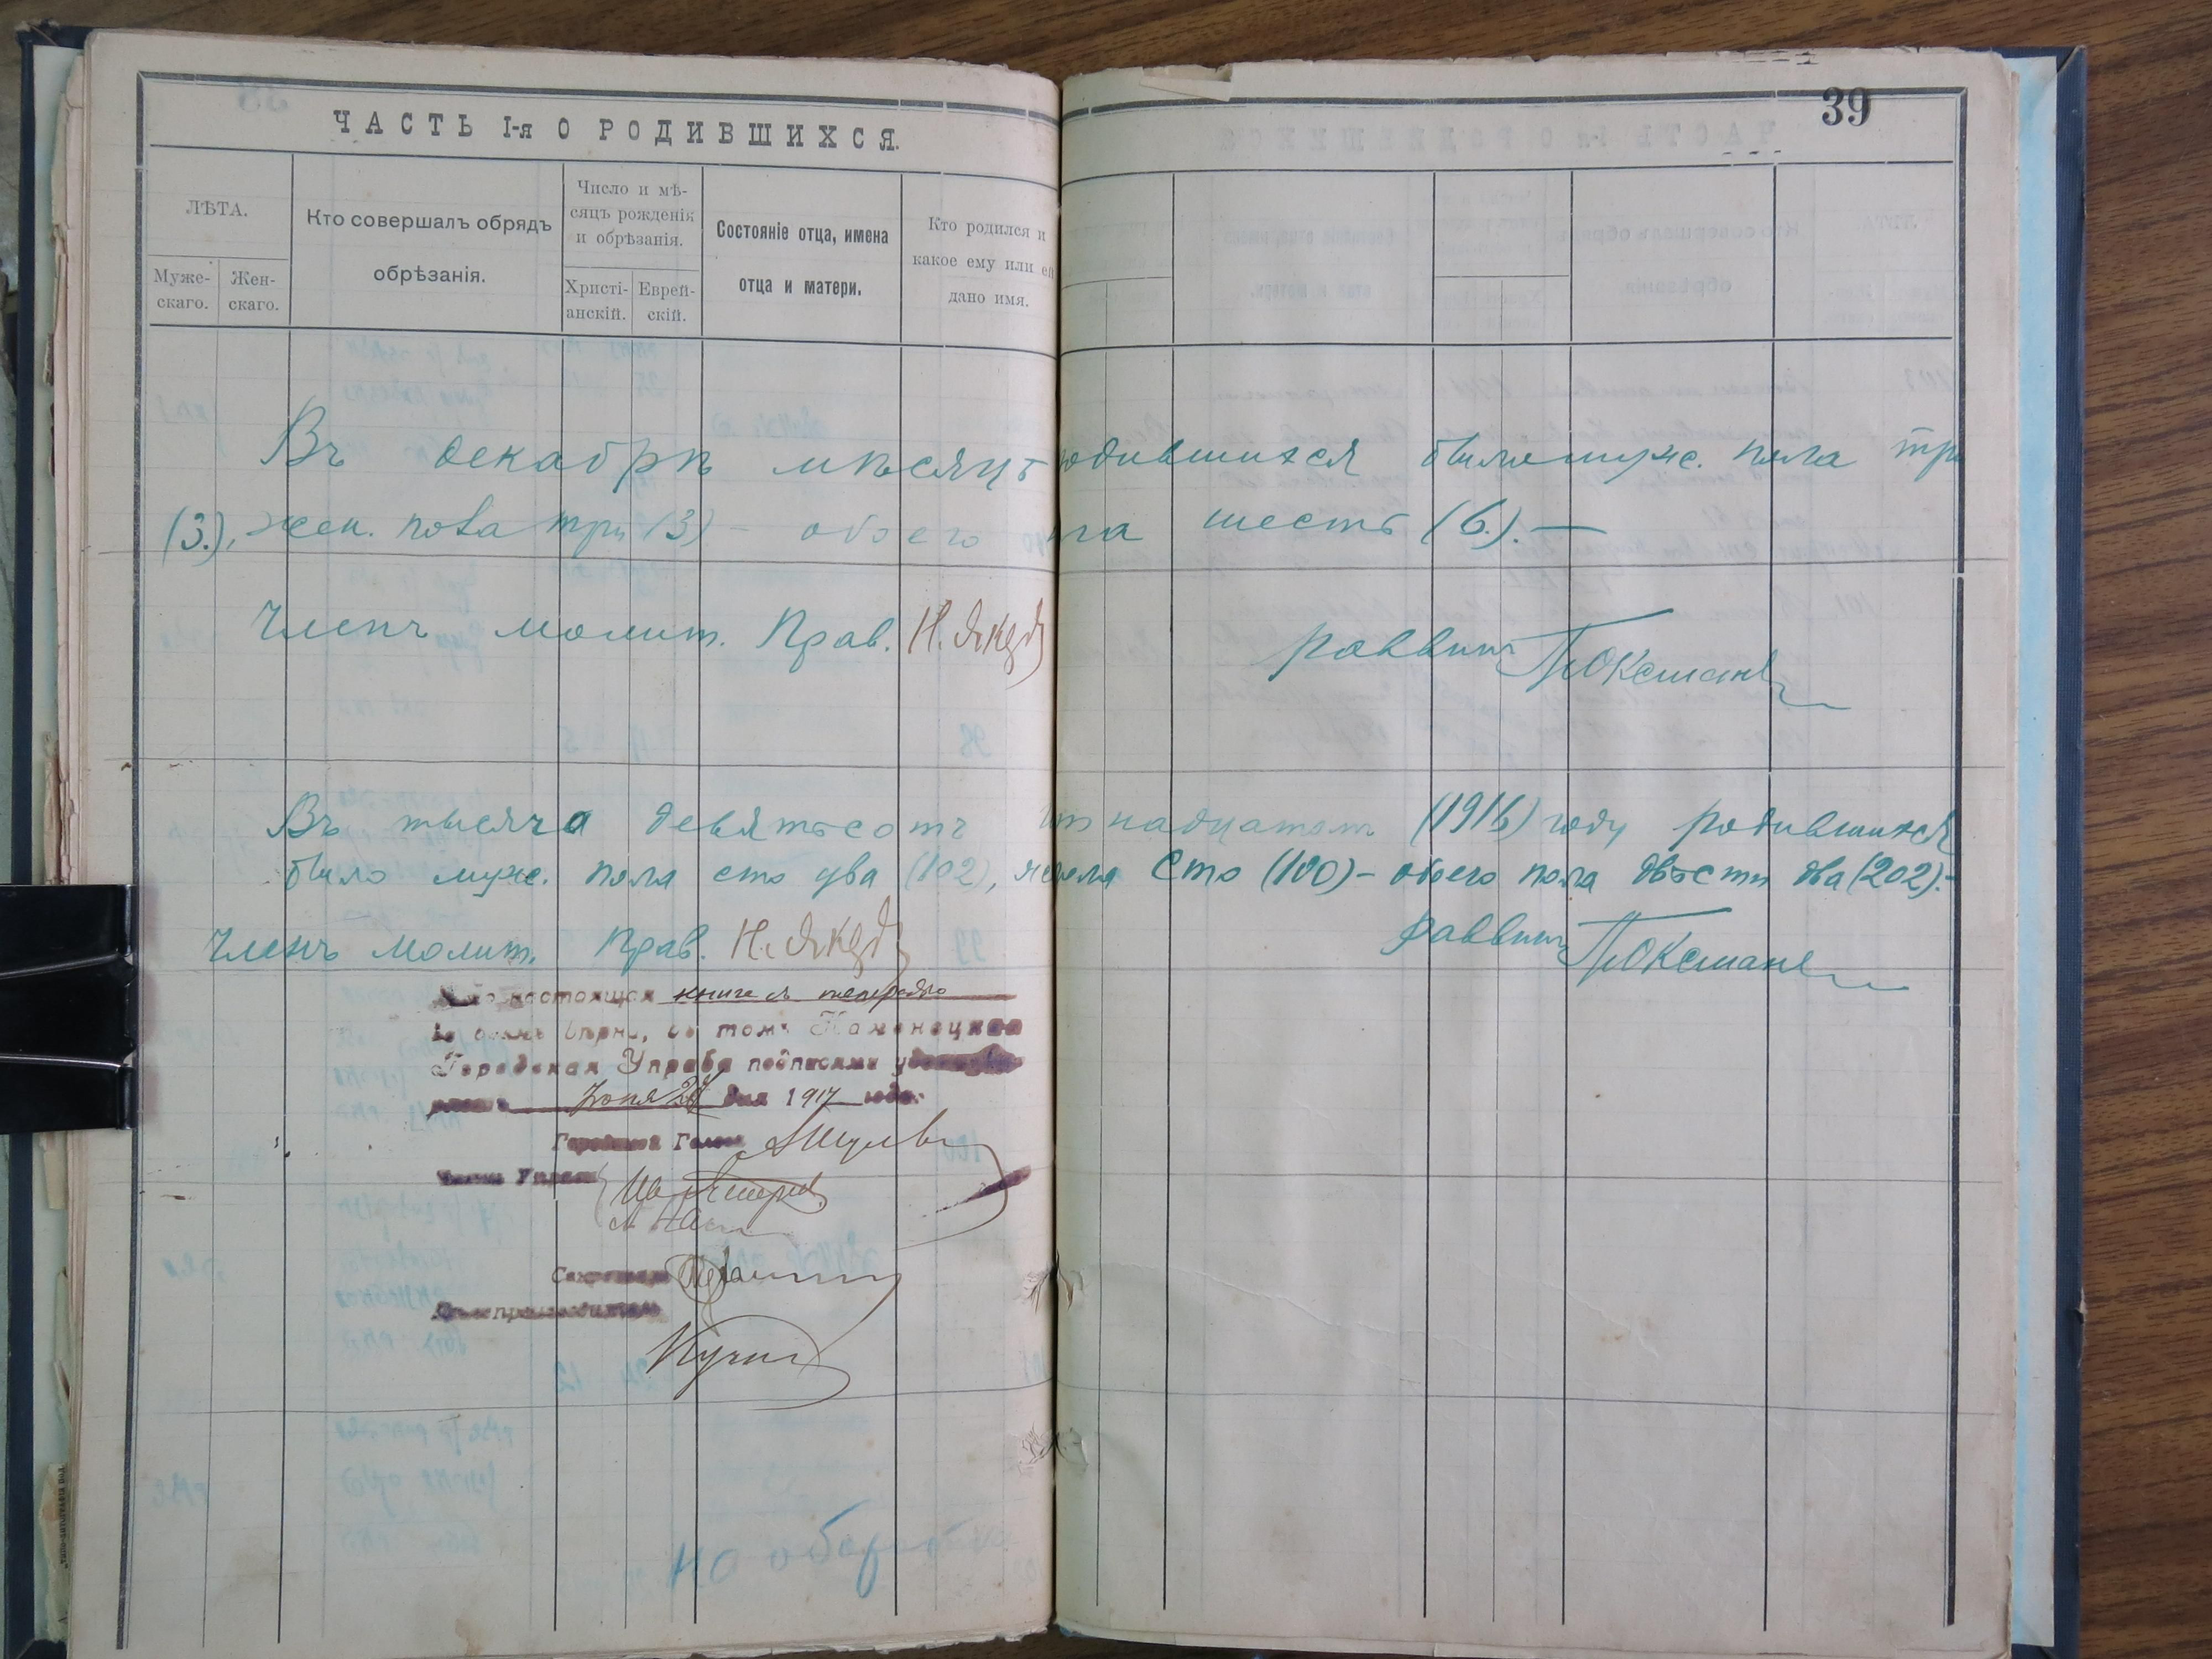 39
ЧАСТЬ I-я О РОДИВШИХСЯ.
ЛѢТА.
Муже-
скаго.
Жен-
скаго.
Кто совершалъ обрядъ
обрѣзанія.
Число и мѣ-
сяцъ рожденія
и обрѣзанія.
Христі-
анскій.
Еврей-
скій.
Состояніе отца, имена
отца и матери.
Кто родился и
какое ему или ей
дано имя.
Въ декабрѣ мѣсяцѣ родившихся было муж. пола три
(3.), жен. пола три (3) - обоего пола шесть (6.). —
Членъ молит. Прав. раввинъ
Въ тысяча девятьсотъ (1916) году родившихся
было муж. пола сто два (102), Сто (100) - обоего пола двѣсти два (202). -
Членъ молит. Прав. раввинъ
настоящая книга
вѣрна, въ томъ Каменецкая
Городская Управа подписями
дня 1917 года.
Городской Голова
Члены Управы
Секретарь
Дѣлопроизводитель
на обороте